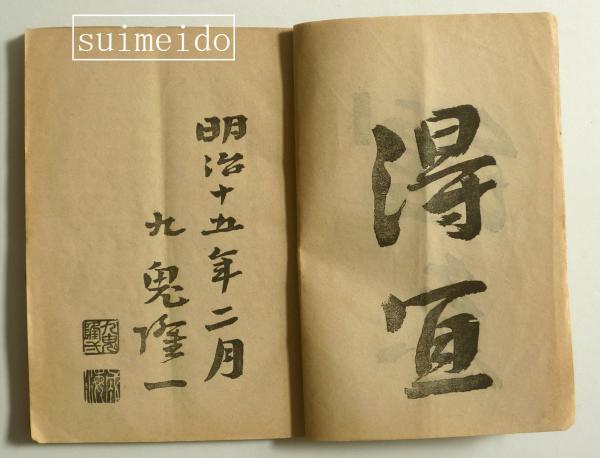 suimeido
得
宜
明治十五年二月
九鬼隆一